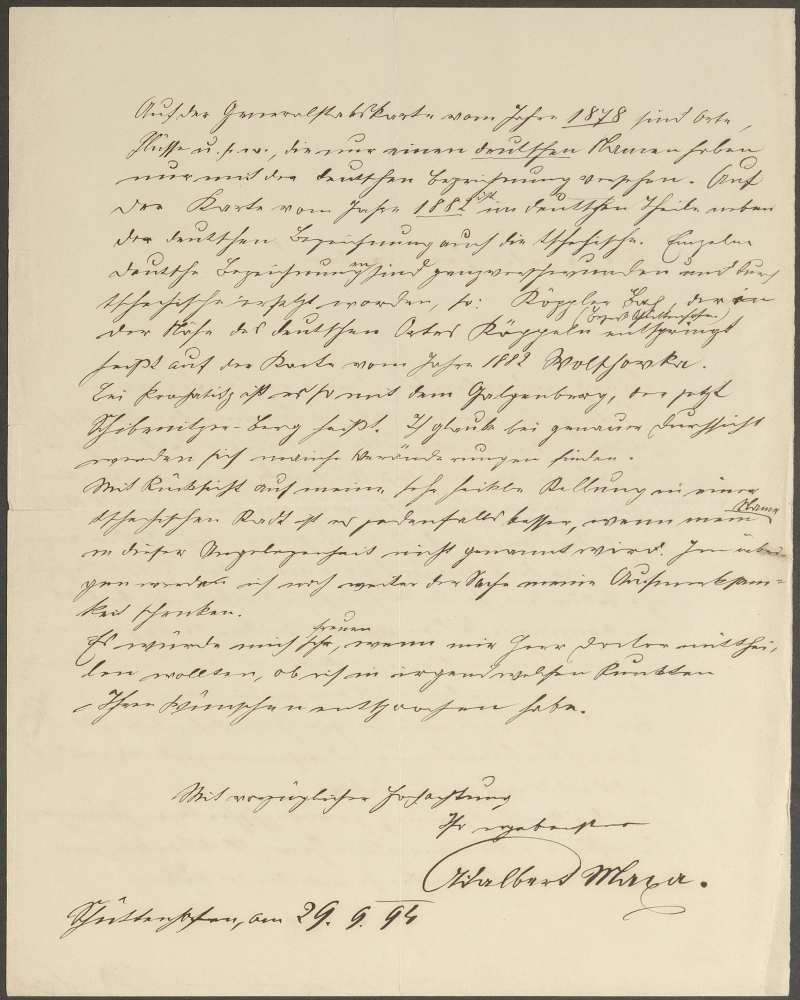 Auf der Generalstabskarte vom Jahre 1878 sind Orte,
Flüsse u. s. w., die nur einen deutschen Namen haben
nur mit der deutschen Bezeichnung versehen. Auf
der Karte vom Jahre 1882 ist im deutschen Theile neben
der deutschen Bezeichnung auch die tschechische. Einzelne
deutsche Bezeichnungen sind ganz verschwunden und durch
tschechische ersetzt worden, so: Köppler Bach, der in
der Nähe des deutschen Ortes Köppeln (Bezirk Schüttenhofen) entspringt
heißt auf der Karte vom Jahre 1882 Wolschovka.
Bei Prachatitz ist es so mit dem Galgenberg, der jetzt
Schibenitzer-Berg heißt. Ich glaube bei genauer Durchsicht
werden sich manche Veränderungen finden.
Mit Rücksicht auf meine sehr heikle Stellung in einer
tschechischen Stadt ist es jedenfalls besser, wenn mein Name
in dieser Angelegenheit nicht genannt wird. Im übri-
gen werde ich noch weiter der Sache meine Aufmerksam-
keit schenken.
Es würde mich sehr freuen, wenn mir Herr Doctor mitthei-
len wollten, ob ich in irgend welchen Punkten
Ihren Wünschen entsprochen habe.
Mit vorzüglicher Hochachtung
Ihr ergebenster
Adalbert Maxa.
Schüttenhofen, am 29. 9. 94